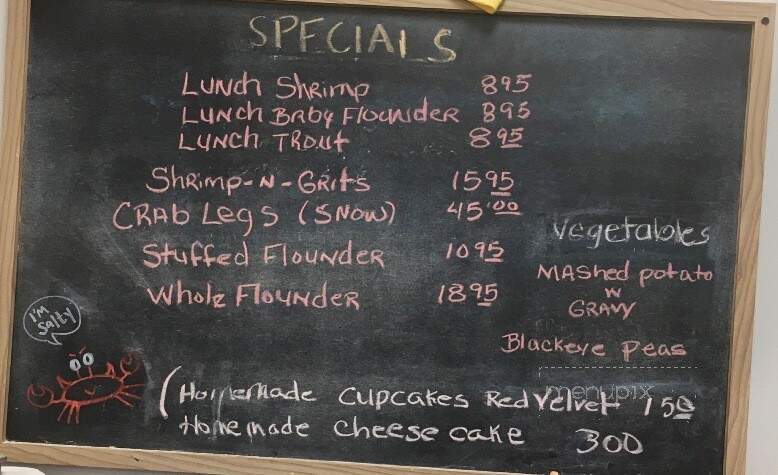 SPECIALS
Lunch Shrimp 895
Lunch Baby Flounder 895
Lunch Trout 895
Shrimp-N-Grits 1595
Crab Legs (Snow) 45.00
Stuffed Flounder 1095
Whole Flounder 1895
Vegetables
Mashed potato
w
Gravy
Blackeye Peas
I'm
Salty
menupix
(Homemade Cupcakes Red Velvet 150
Homemade cheese cake 300